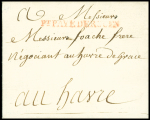 A Messieurs
Messieurs foache frere
Négociant au havre de Grace
au havre